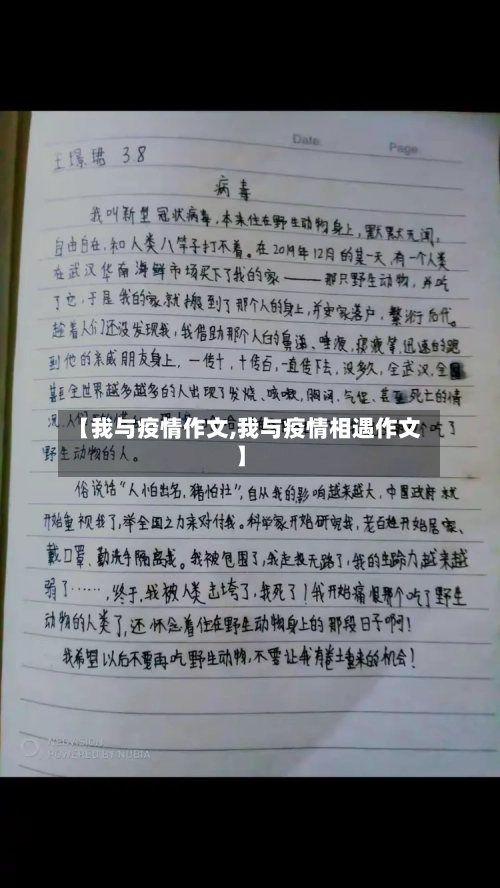 Date.
Page.
王璟珺 3.8
病毒
我叫新型冠状病毒,本来住在野生动物身上,默默无闻,
自由自在,和人类八竿子打不着。在2019年12月的某一天,有一个人类
在武汉华南海鲜市场买下了我的家——那只野生动物,并吃
了它,于是我的家就搬到了那个人的身上,并安家落户,繁衍后代。
趁着人们还没发现我,我借助那个人的鼻涕、唾液、痰液等,迅速的跑
到他的亲戚朋友身上,一传十,十传百,一直传下去,没多久,全武汉,全国
甚至全世界越多越多的人出现了发烧、咳嗽,胸闷,气促,甚至死亡的情
况,人们
吃了
【我与疫情作文,我与疫情相遇作文
】
野生动物的人。
俗说话“人怕出名,猪怕壮”,自从我的影响越来越大,中国政府就
开始重视我了,举全国之力来对付我。科学家开始研究我,老百姓开始居家、
戴口罩、勤洗手隔离我。我被包围了,我走投无路了,我的生命力越来越
弱了……,终于,我被人类击垮了,我死了!我开始痛恨那个吃了野生
动物的人类了,还怀念着住在野生动物身上的那段日子啊!
我希望以后不要再吃野生动物,不要让我有卷土重来的机会!
POWERED BY NUBIA